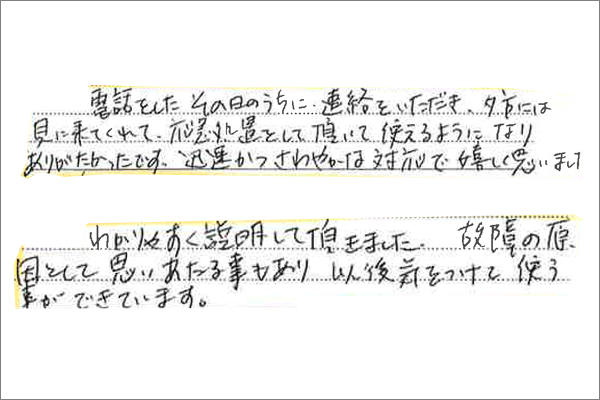 電話をしたその日のうちに連絡をいただき、夕方には
見に来てくれて、応急処置として頂いて使えるようになり
ありがたかったです。迅速かつさわやかな対応で嬉しく思いまし
わかりやすく説明して頂きました。故障の原
因として思いあたる事もあり以後気をつけて使う
事ができています。